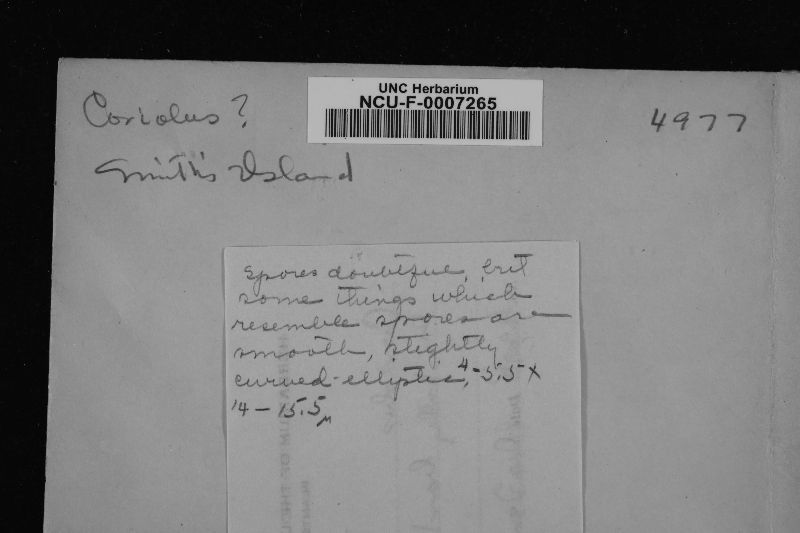 Coriolus?
UNC Herbarium
NCU-F-0007265
4977
Smith's Island
Spores doubtful, but
some things which
resemble spores are
smooth, slightly
curved-elliptic, 4-5.5 x
14-15.5µ